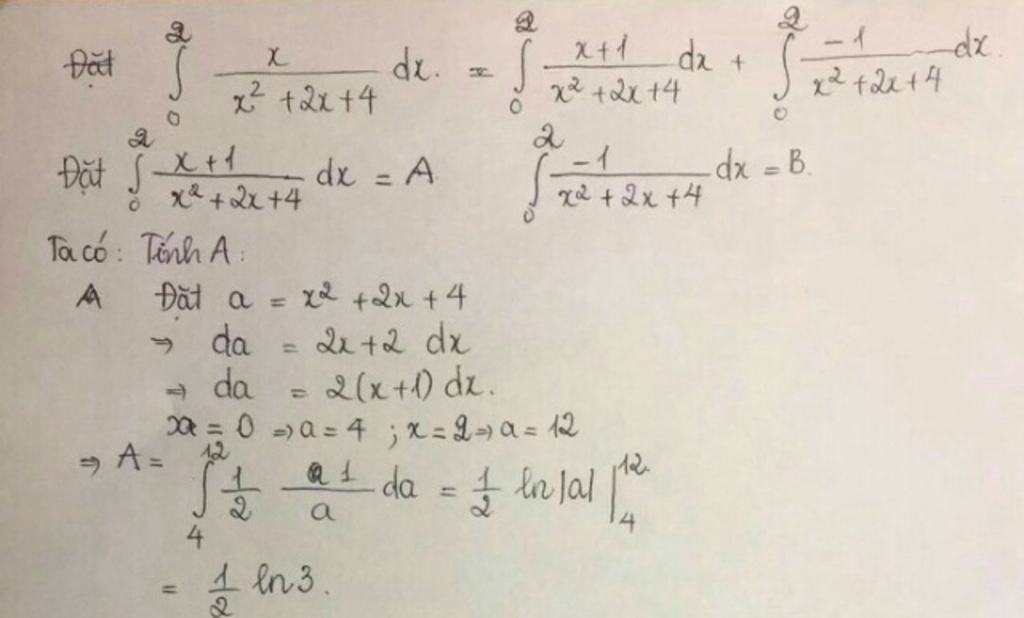 Đặt ∫₀² x/(x² + 2x + 4) dx. = ∫₀² (x+1)/(x² + 2x + 4) dx + ∫₀² -1/(x² + 2x + 4) dx.
Đặt ∫₀² (x+1)/(x² + 2x + 4) dx = A ∫₀² -1/(x² + 2x + 4) dx = B.
Ta có: Tính A:
A Đặt a = x² + 2x + 4
⇒ da = 2x+2 dx
⇒ da = 2(x+1) dx.
x = 0 ⇒ a = 4 ; x = 2 ⇒ a = 12
⇒ A = ∫₄¹² 1/2 1/a da = 1/2 ln|a| |₄¹²
= 1/2 ln3.